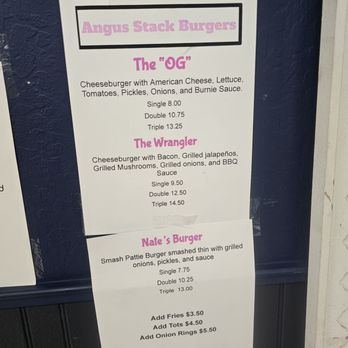 Angus Stack Burgers
The "OG"
Cheeseburger with American Cheese, Lettuce,
Tomatoes, Pickles, Onions, and Burnie Sauce.
Single 8.00
Double 10.75
Triple 13.25
The Wrangler
Cheeseburger with Bacon, Grilled jalapeños,
Grilled Mushrooms, Grilled onions, and BBQ
Sauce
Single 9.50
Double 12.50
Triple 14.50
Nale's Burger
Smash Pattie Burger smashed thin with grilled
onions, pickles, and sauce
Single 7.75
Double 10.25
Triple 13.00
Add Fries $3.50
Add Tots $4.50
Add Onion Rings $5.50
d